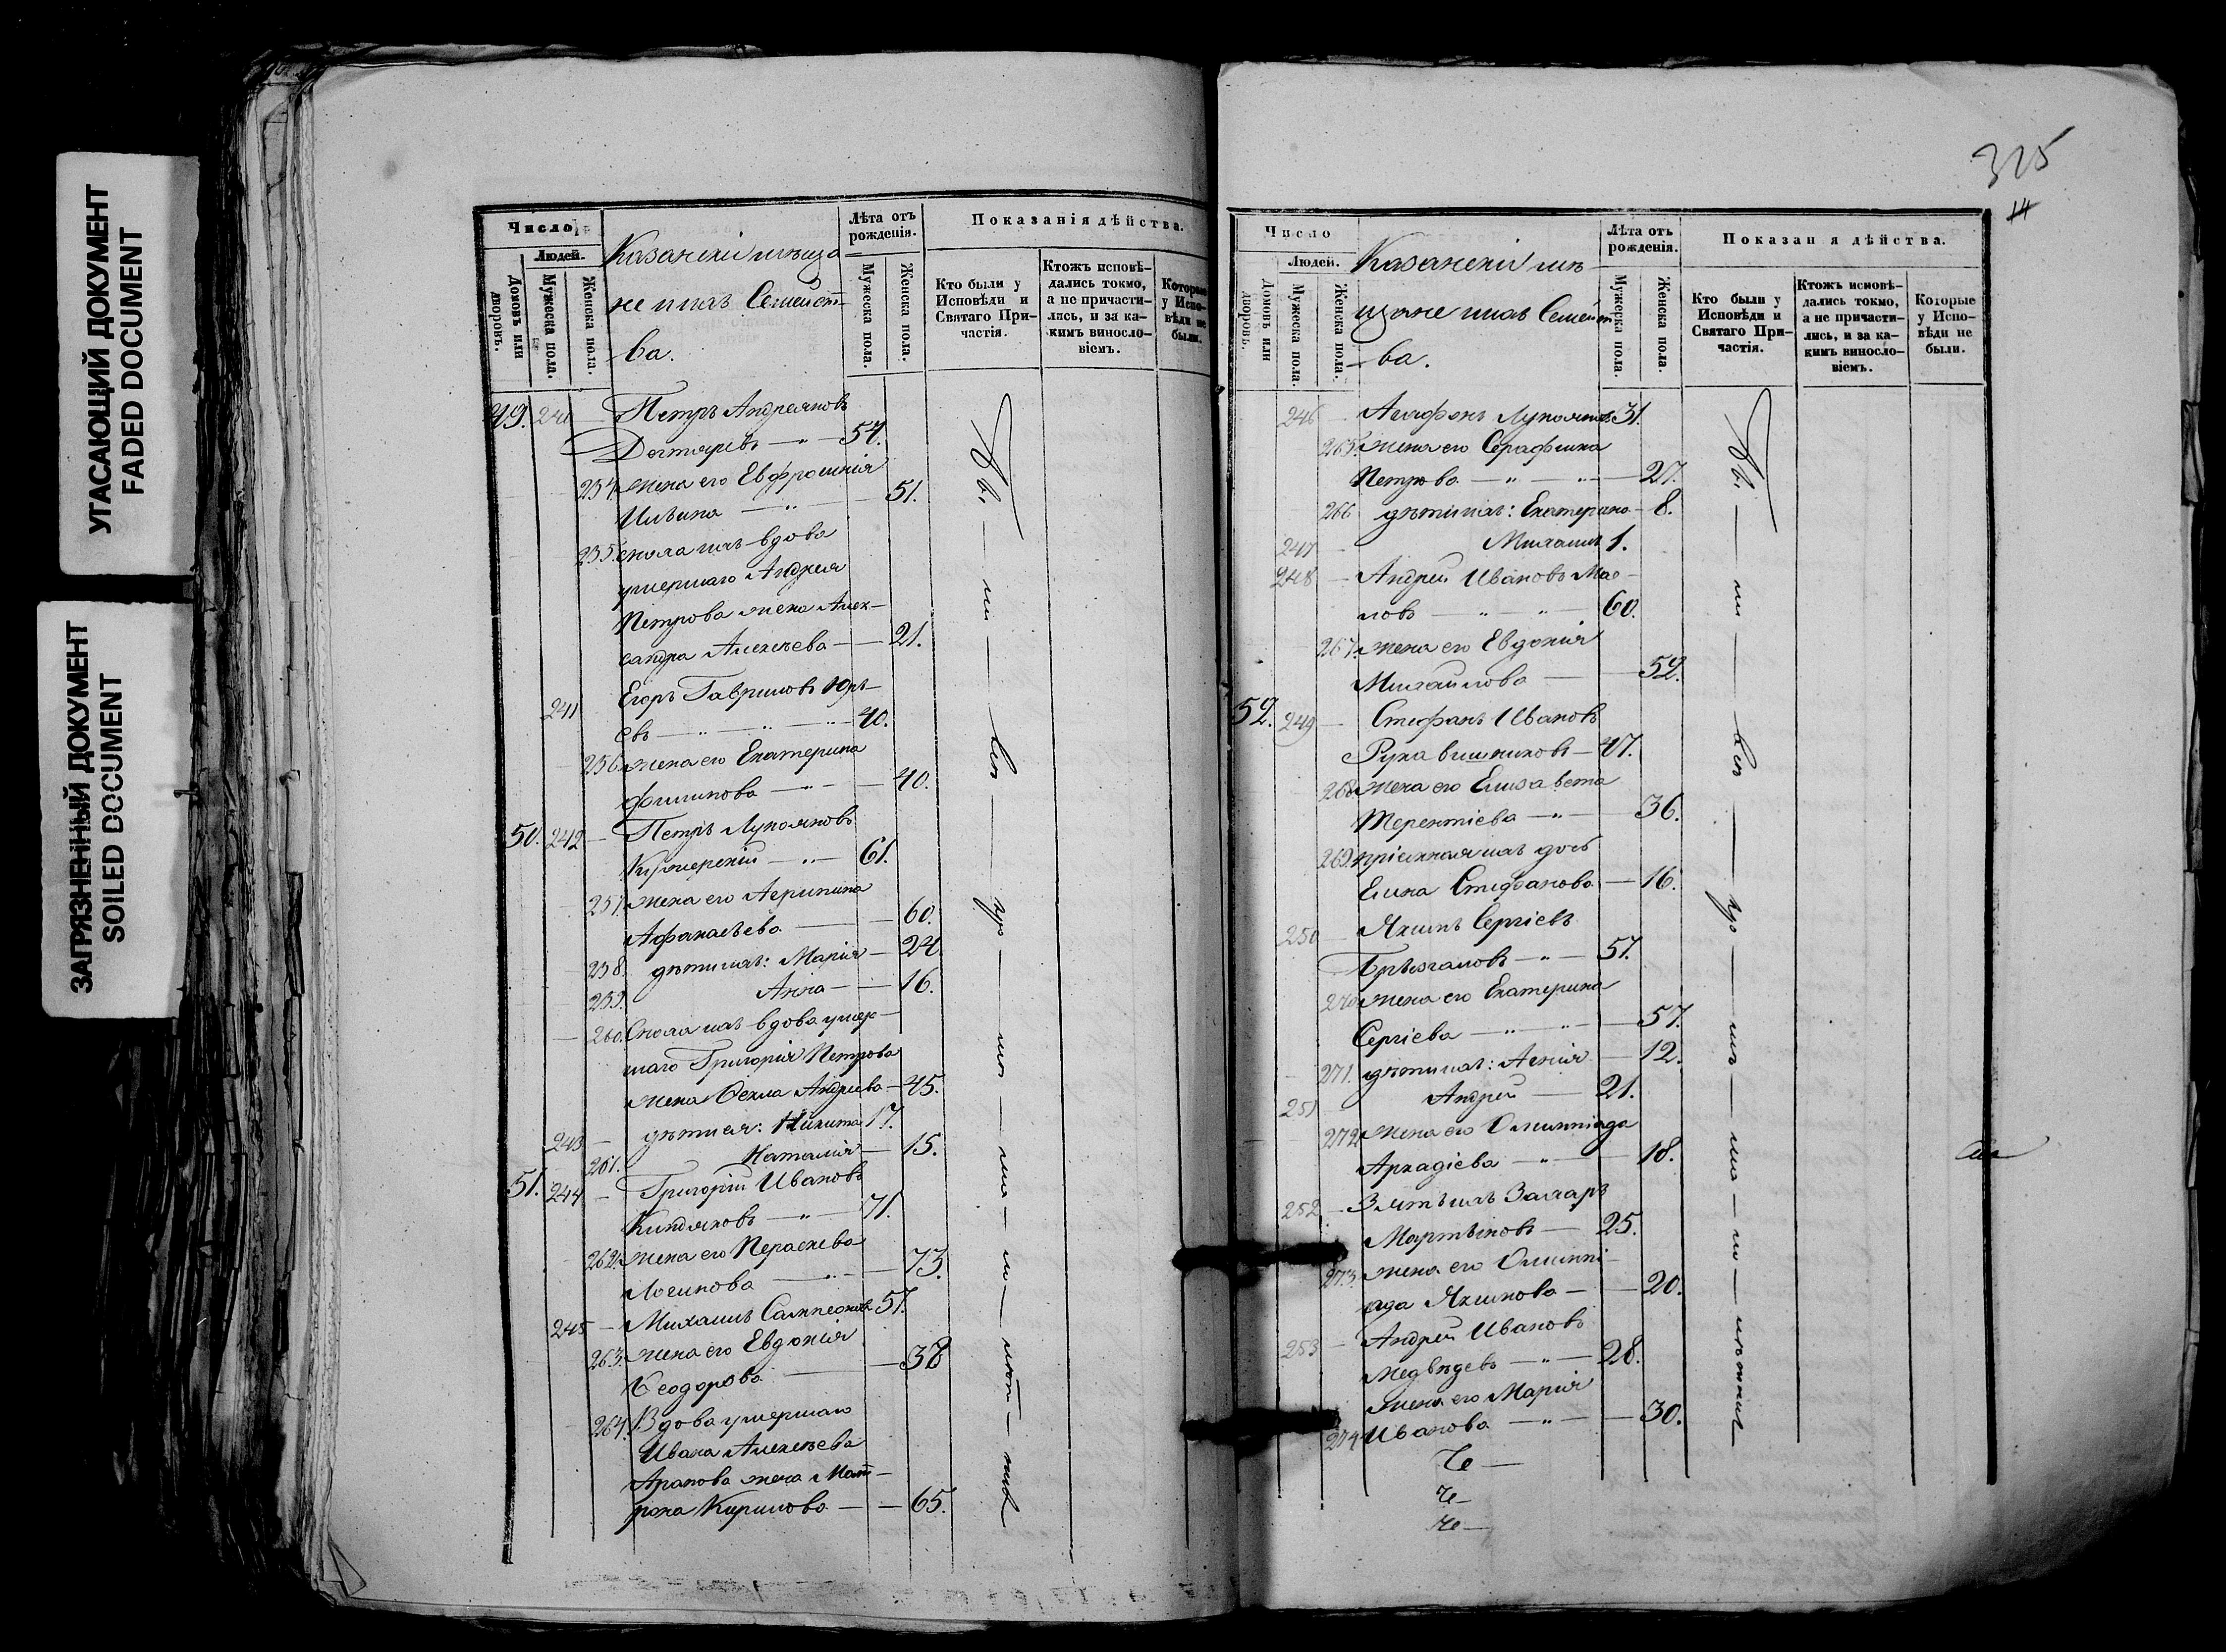 УГАСАЮЩИЙ ДОКУМЕНТ
FADED DOCUMENT
ЗАГРЯЗНЕННЫЙ ДОКУМЕНТ
SOILED DOCUMENT
Число
Людей.
Домовъ или дворовъ.
Мужеска пола.
Женска пола.
Казанскіи мѣща
не и ихъ Семейст-
ва.
Лѣта отъ рожденія.
Мужеска пола.
Женска пола.
Показанія дѣйства.
Кто были у Исповѣди и Святаго При-частія.
Ктожъ исповѣ-дались токмо, а не причасти-лись, и за ка-кимъ винсло-віемъ.
Которые у Испо-вѣди не были.
49. 240 — Петръ Андреяновъ
Дегтяревъ — 54.
254. жена его Евфросинія
Ильина — 51.
255. сноха ихъ вдова
умершаго Андрея
Петрова жена Алек-
сандра Алексѣева — 21.
241 Егоръ Гавриловъ Юрь-
евъ — 40.
256. жена его Екатерина
Филипова — 40.
50. 242 — Петръ Лукояновъ
61.
257. жена его Агрипина
Афанасьева — 60.
258. дѣти ихъ: Марія — 24
259. Анна — 16.
260. Сноха ихъ вдова умер-
шаго Григорія Петрова
жена Ѳекла Андреева — 45.
243 — дѣти ея: Никита 17.
261. Наталія — 15.
51. 244 — Григорій Ивановъ
Киндяковъ — 71.
262. жена его Параскева
Логинова — 73.
245 — Михаилъ Сампсоновъ 57.
263. жена его Евдокія
Ѳеодорова — 38
264. Вдова умершаго
Ивана Алексѣева
Арапова жена Мат-
рона Кирилова — 65.
Бы — ли — всѣ — у — ис
315
14
Число
Людей.
Домовъ или дворовъ.
Мужеска пола.
Женска пола.
Казанскіи мѣ-
щане и ихъ Семейст
-ва.
Лѣта отъ рожденія.
Мужеска пола.
Женска пола.
Показан я дѣйства.
Кто были у Исповѣди и Святаго При-частія.
Ктожъ исповѣ-дались токмо, а не причасти-лись, и за ка-кимъ винсло-віемъ.
Которые у Испо-вѣди не были.
246 Агафонъ Лукояновъ 31.
265. жена его Серафима
Петрова — 27.
266 дѣти ихъ: Екатерина — 8.
247 Михаилъ 1.
248 — Андрей Ивановъ Мас-
ловъ — 60.
267. жена его Евдокія
Михайлова — 52.
52. 249 — Стефанъ Ивановъ
Рукавишниковъ — 47.
268. жена его Елисавета
Терентіева — 36.
269. пріемная ихъ дочь
Елена Стефанова — 16.
250 — Якимъ Сергіевъ
57.
270 жена его Екатерина
Сергіева — 57.
271. дѣти ихъ: Агнія — 12.
251 Андрей — 21.
272. жена его Олимпіада
Аркадіева — 18.
252 — Зять ихъ Захаръ
Мартыновъ — 25.
273. жена его Олимпі-
ада Якимова — 20.
253 — Андрей Ивановъ
Медвѣдевъ — 28.
жена его Марія
274 Иванова — 30.
Че —
Че —
Че —